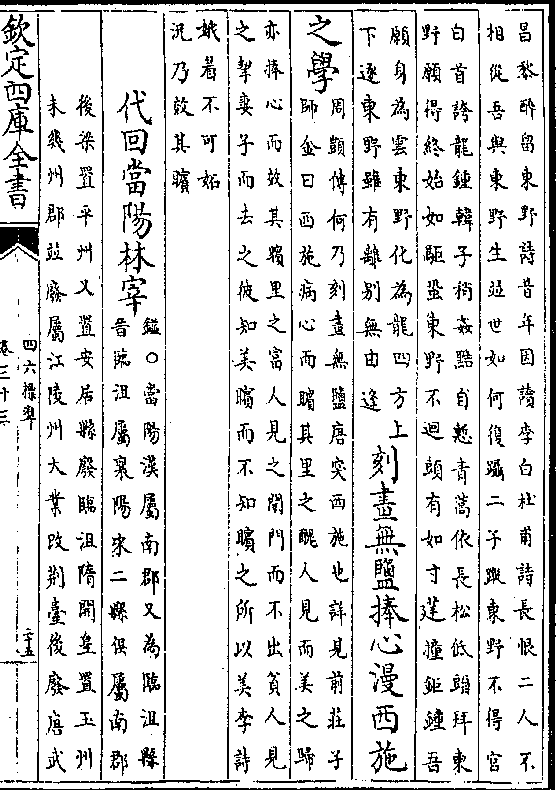 昌黎醉留東野詩昔年因讀李白杜甫詩長恨二人不
相從吾與東野生並世如何復躡二子蹤東野不得官
白首誇龍鍾韓子稍姦黠自慙青蒿依長松低頭拜東
野願得終始如駏蛩東野不迴頭有如寸莛撞鉅鍾吾
願身為雲東野化為龍四方上
下逐東野雖有離别無由逢
刻畫無鹽捧心漫西施
之學
周顗傳何乃刻畫無鹽唐突西施也詳見前莊子
師金曰西施病心而矉其里之醜人見而美之歸
亦捧心而效其矉里之富人見之閉門而不出貧人見
之挈妻子而去之彼知美矉而不知矉之所以美李詩
蛾眉不可妬
況乃效其矉
代回當陽林宰
鎰○當陽漢屬南郡又為臨沮縣
晉臨沮屬襄陽宋二縣俱屬南郡
後梁置平州又置安居縣廢臨沮隋開皇置玉州
未幾州郡並廢屬江陵州大業改荆臺後廢唐武
欽定四庫全書
四六標準
卷三十三
二十五